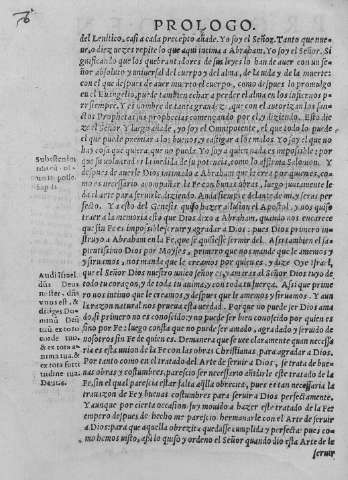 PROLOGO.
del Leuitico, casi a cada precepto añade. Yo soy el Señor. Tanto que nue
ue, o diez vezes repite lo que aqui intima a Abraham, Yo soy el Señor. Si
gnificando que los quebrantadores de sus leyes lo han de auer con vn se-
ñor absoluto y vniuersal del cuerpo y del alma, de la vida y de la muerte:
con el que despues de auer muerto el cuerpo, como despues lo promulgo
en el Euangelio, puede tambien echar a perder el alma en los infiernos pa
ra siempre. Y es nombre de tanta grandeza, que con el autorizan los san-
ctos Prophetas sus prophecias començando por el, y diziendo. Esto di-
ze el Señor Y largo añade, yo soy el Omnipotente, el que todo lo puede
el que puede premiar a los buenos y castigar a los malos. Yo soy el que no
hay cosa que quiera, que no puede. Yo soy a quien nada es impossible: por
que su voluntad es la medida de su potencia, como lo affirma Salomon. Y
despues de auer intimado a Abraham que le crea por quien es, como
es necessario acompañar la Fe con buenas obras, luego juntamente le
da el arte para seruirle, diziendo. Anda siempre delante de mi, y seras per
fecto. Ya esto del Genesis quiso hazer allusion el Apostol, y nos quiso
traer a la memoria esto que Dios dixo a Abraham, quando nos encarece
que sin Fe es impossible seruir y agradar a Dios: pues Dios primero in-
struyo a Abraham en la Fe, que se quisiesse seruir del. Assi tambien el sa
pientissimo Dios por Moyses, primero que nos mande que le amemos y
y siruamos, nos manda que le creamos por quien es, y dize. Oye Israel,
que el Señor Dios nuestro vnico señor es, y amaras al Señor Dios tuyo de
todo tu coraçon, y de toda tu anima, y con toda tu fuerça. Assi que prime
ro nos intimo que le creamos, y despues que le amemos y siruamos. Y aun
la razon natural nos prueua esta verdad. Porque no puede ser Dios ama
do, si primero no es conoscido: y no puede ser bien conoscido por quien es
sino por Fe: luego consta que no puede ser amado, agradado y seruido de
nosotros sin Fe de quien es. Demanera que se vee claramente quan necessa
ria es esta vnion de la Fe con las obras Christianas para agradar a Dios.
Por tanto como en el tratado del Arte de seruir a Dios, se trata de bue-
nas obras y costumbres, parescio ser necessario añidirle este tratado de la
Fe, sin el qual parescia estar falta aquella obrecita, pues es tan necessaria la
trauazon de Fe y buenas costumbres para seruir a Dios perfectamente.
Y aunque por cierta occasion fuy mouido a hazer este tratado de la Fe:
empero despues de hecho me parescio hermanarle con el Arte de seruir
a Dios: para que aquella obrezita quedasse cumplida y perfecta: pues co-
mo hemos visto, assi lo quiso y ordeno el Señor quando dio esta Arte de
seruir
Audi Israel.
dñs Deus
noster, dñs
vnus est, &
diliges Do-
minũ Deũ
tuũ ex toto
corde tuo,
& ex tota a
nima tua, &
ex tota forti
tudine tua.
Deut. 6.